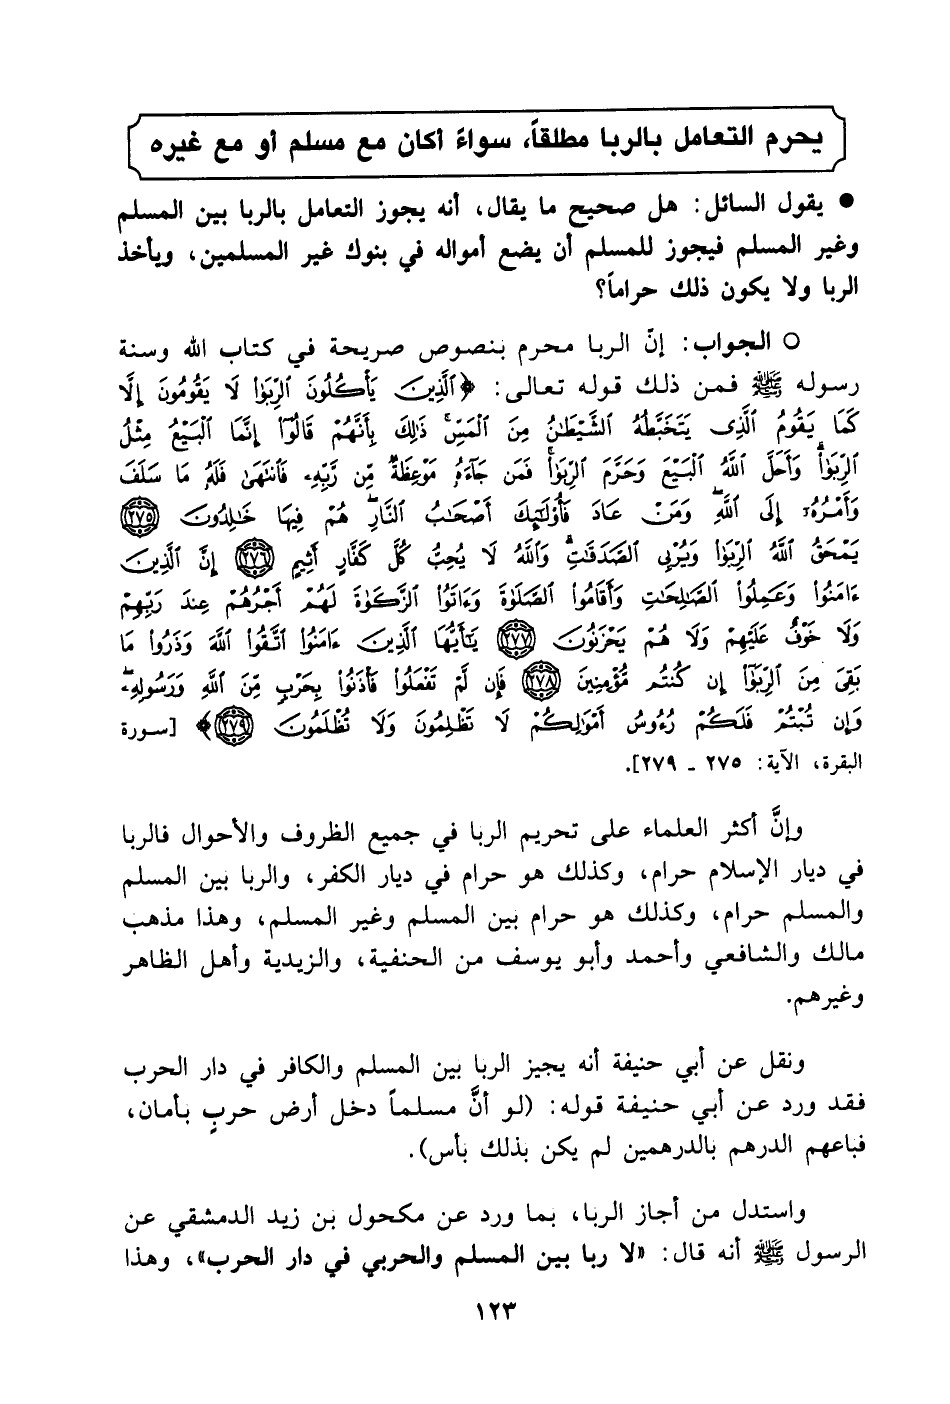 يحرم التعامل بالربا مطلقاً، سواءً أكان مع مسلم أو مع غيره
● يقول السائل: هل صحيح ما يقال، أنه يجوز التعامل بالربا بين المسلم
وغير المسلم فيجوز للمسلم أن يضع أمواله في بنوك غير المسلمين، ويأخذ
الربا ولا يكون ذلك حراماً؟
○ الجواب: إنّ الربا محرم بنصوص صريحة في كتاب الله وسنة
رسوله ﷺ فمن ذلك قوله تعالى: ﴿ٱلَّذِينَ يَأْكُلُونَ ٱلرِّبَوٰا۟ لَا يَقُومُونَ إِلَّا
كَمَا يَقُومُ ٱلَّذِى يَتَخَبَّطُهُ ٱلشَّيْطَٰنُ مِنَ ٱلْمَسِّ ۚ ذَٰلِكَ بِأَنَّهُمْ قَالُوٓا۟ إِنَّمَا ٱلْبَيْعُ مِثْلُ
ٱلرِّبَوٰا۟ ۗ وَأَحَلَّ ٱللَّهُ ٱلْبَيْعَ وَحَرَّمَ ٱلرِّبَوٰا۟ ۚ فَمَن جَآءَهُۥ مَوْعِظَةٌ مِّن رَّبِّهِۦ فَٱنتَهَىٰ فَلَهُۥ مَا سَلَفَ
وَأَمْرُهُۥٓ إِلَى ٱللَّهِ ۖ وَمَنْ عَادَ فَأُو۟لَٰٓئِكَ أَصْحَٰبُ ٱلنَّارِ ۖ هُمْ فِيهَا خَٰلِدُونَ ٢٧٥
يَمْحَقُ ٱللَّهُ ٱلرِّبَوٰا۟ وَيُرْبِى ٱلصَّدَقَٰتِ ۗ وَٱللَّهُ لَا يُحِبُّ كُلَّ كَفَّارٍ أَثِيمٍ ٢٧٦ إِنَّ ٱلَّذِينَ
ءَامَنُوا۟ وَعَمِلُوا۟ ٱلصَّٰلِحَٰتِ وَأَقَامُوا۟ ٱلصَّلَوٰةَ وَءَاتَوُا۟ ٱلزَّكَوٰةَ لَهُمْ أَجْرُهُمْ عِندَ رَبِّهِمْ
وَلَا خَوْفٌ عَلَيْهِمْ وَلَا هُمْ يَحْزَنُونَ ٢٧٧ يَٰٓأَيُّهَا ٱلَّذِينَ ءَامَنُوا۟ ٱتَّقُوا۟ ٱللَّهَ وَذَرُوا۟ مَا
بَقِىَ مِنَ ٱلرِّبَوٰٓا۟ إِن كُنتُم مُّؤْمِنِينَ ٢٧٨ فَإِن لَّمْ تَفْعَلُوا۟ فَأْذَنُوا۟ بِحَرْبٍ مِّنَ ٱللَّهِ وَرَسُولِهِۦ ۖ
وَإِن تُبْتُمْ فَلَكُمْ رُءُوسُ أَمْوَٰلِكُمْ لَا تَظْلِمُونَ وَلَا تُظْلَمُونَ ٢٧٩﴾ [سورة
البقرة، الآية: ٢٧٥ ـ ٢٧٩].
وإنَّ أكثر العلماء على تحريم الربا في جميع الظروف والأحوال فالربا
في ديار الإسلام حرام، وكذلك هو حرام في ديار الكفر، والربا بين المسلم
والمسلم حرام، وكذلك هو حرام بين المسلم وغير المسلم، وهذا مذهب
مالك والشافعي وأحمد وأبو يوسف من الحنفية، والزيدية وأهل الظاهر
وغيرهم.
ونقل عن أبي حنيفة أنه يجيز الربا بين المسلم والكافر في دار الحرب
فقد ورد عن أبي حنيفة قوله: (لو أنَّ مسلماً دخل أرض حربٍ بأمان،
فباعهم الدرهم بالدرهمين لم يكن بذلك بأس).
واستدل من أجاز الربا، بما ورد عن مكحول بن زيد الدمشقي عن
الرسول ﷺ أنه قال: «لا ربا بين المسلم والحربي في دار الحرب»، وهذا
١٢٣